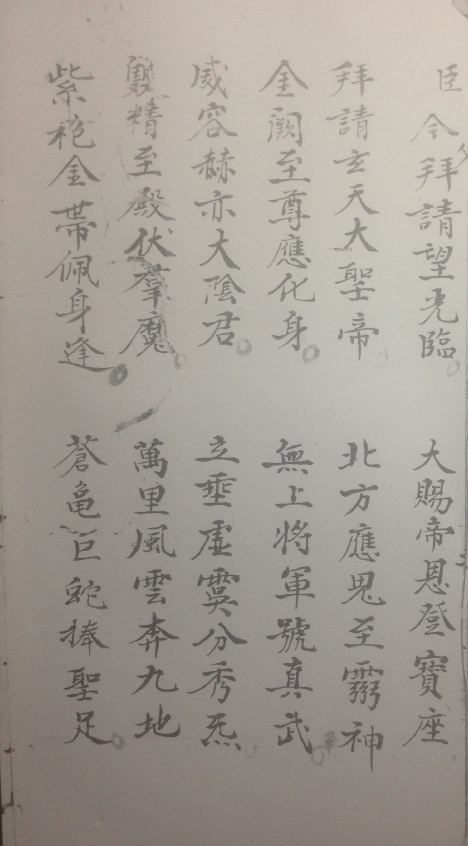 臣今拜請望光臨 大賜帝恩登寶座
拜請玄天大聖帝 北方應鬼至靈神
金闕至尊應化身 無上将軍號真武
威容赫亦大陰君 立埀虛分秀炁
雙精至殿伏羣魔 萬里風雲奔九地
紫袍金帶佩身逢 蒼亀巨蛇捧聖足